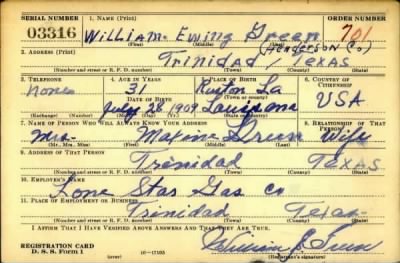 SERIAL NUMBER 1. NAME (Print) ORDER NUMBER
03316 William Ewing Green 701
(First) (Middle) (Last)
2. ADDRESS (Print) (Henderson Co)
Trinidad, Texas
(Number and street or R. F. D. number) (Town) (County) (State)
3. TELEPHONE 4. AGE IN YEARS 5. PLACE OF BIRTH 6. COUNTRY OF CITIZENSHIP
none 31 Ruston La
DATE OF BIRTH (Town or county)
July 26 1909 Louisiana USA
(Mo.) (Day) (Yr.) (State or country)
7. NAME OF PERSON WHO WILL ALWAYS KNOW YOUR ADDRESS 8. RELATIONSHIP OF THAT PERSON
Mrs. Maxine Green Wife
(Mr., Mrs., Miss) (First) (Middle) (Last)
9. ADDRESS OF THAT PERSON
Trinidad Texas
(Number and street or R. F. D. number) (Town) (County) (State)
10. EMPLOYER'S NAME
Lone Star Gas Co
11. PLACE OF EMPLOYMENT OR BUSINESS
Trinidad Texas
(Number and street or R. F. D. number) (Town) (County) (State)
I AFFIRM THAT I HAVE VERIFIED ABOVE ANSWERS AND THAT THEY ARE TRUE.
REGISTRATION CARD
D. S. S. Form 1 (over) (Registrant's signature)
William E. Green